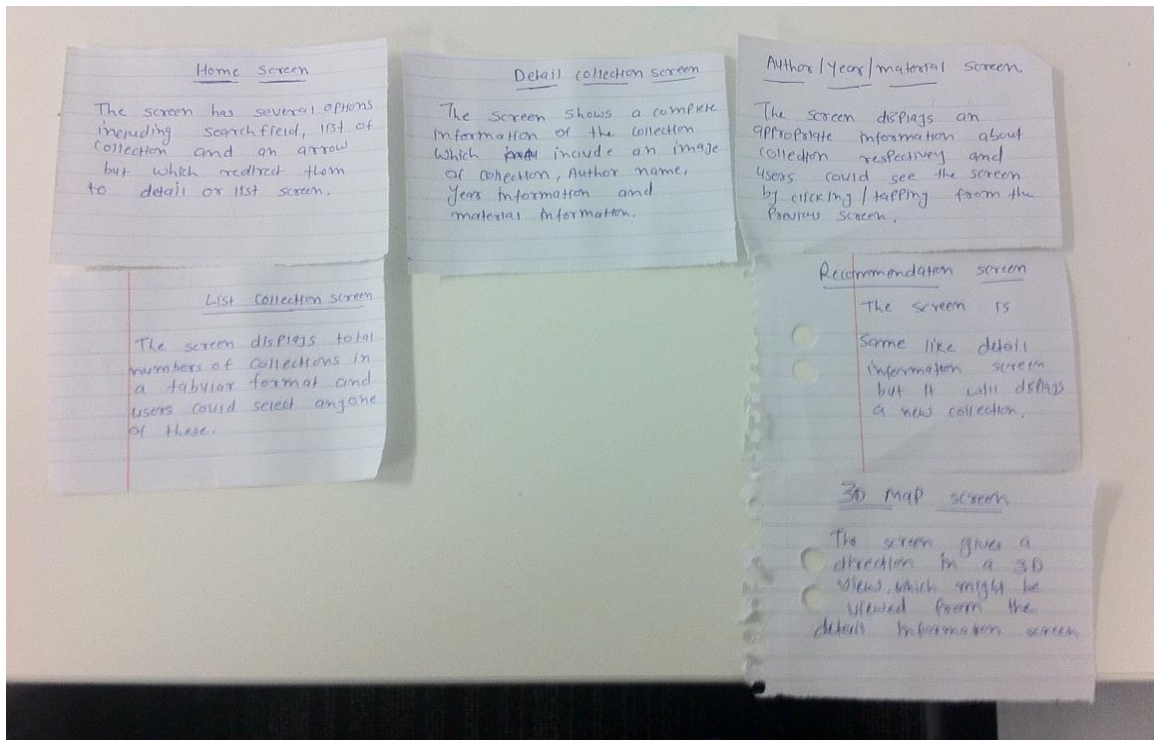 Home Screen
The screen has several options
including searchfield, list of
collection and an arrow
but which redirect them
to detail or list screen.
List Collection screen
The screen displays total
numbers of collections in
a tabular format and
users could select anyone
of these.
Detail collection screen
The screen shows a complete
information of the collection
which include an image
of collection, Author name,
Year information and
material information.
Author/Year/material screen
The screen displays an
appropriate information about
collection respectivey and
users could see the screen
by clicking/tapping from the
Previous screen.
Recommendation screen
The screen is
same like detail
information screen
but it will displays
a new collection.
3D Map screen
The screen gives a
direction in a 3D
view, which might be
viewed from the
details information screen